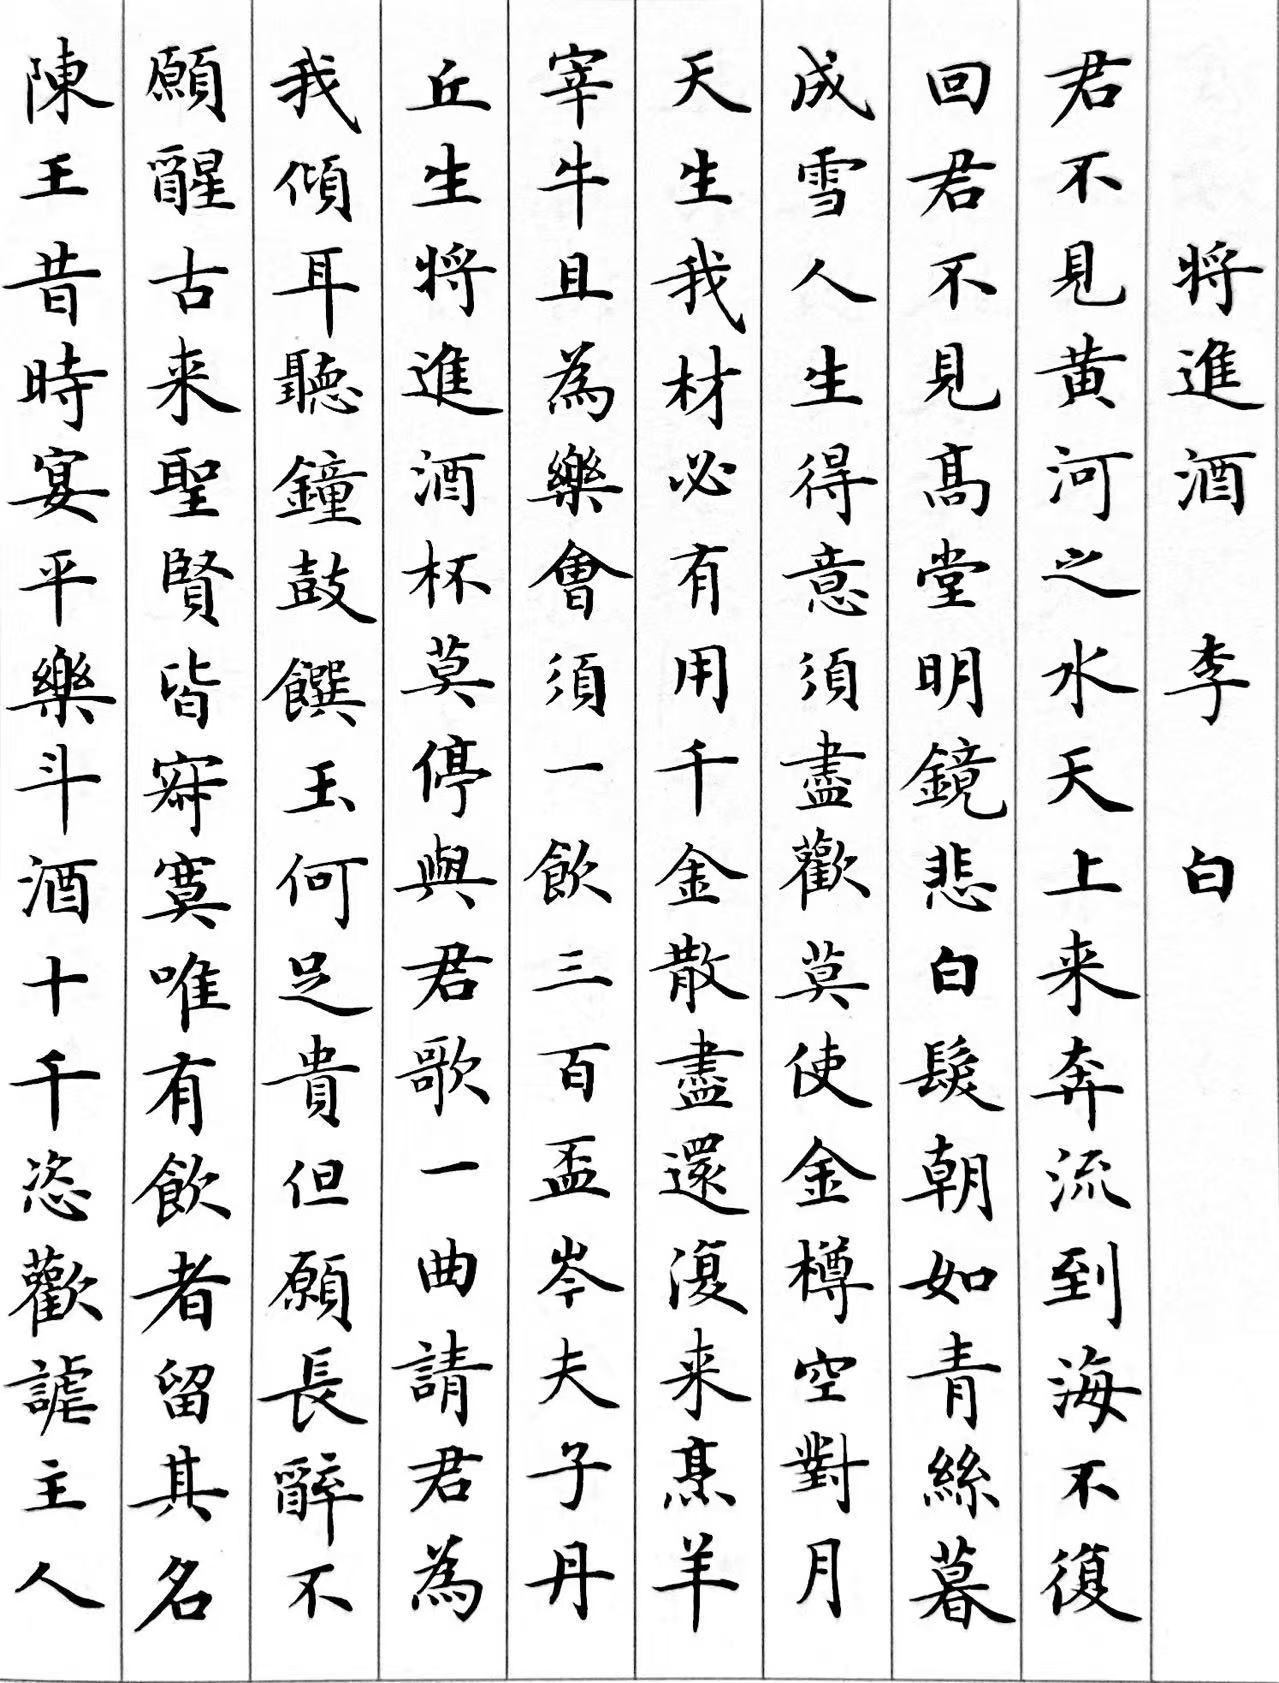 將進酒 李白
君不見黃河之水天上来奔流到海不復
回君不見高堂明鏡悲白髮朝如青絲暮
成雪人生得意須盡歡莫使金樽空對月
天生我材必有用千金散盡還復来烹羊
宰牛且為樂會須一飲三百盃岑夫子丹
丘生將進酒杯莫停與君歌一曲請君為
我傾耳聽鐘鼓饌玉何足貴但願長醉不
願醒古来聖賢皆寂寞唯有飲者留其名
陳王昔時宴平樂斗酒十千恣歡謔主人